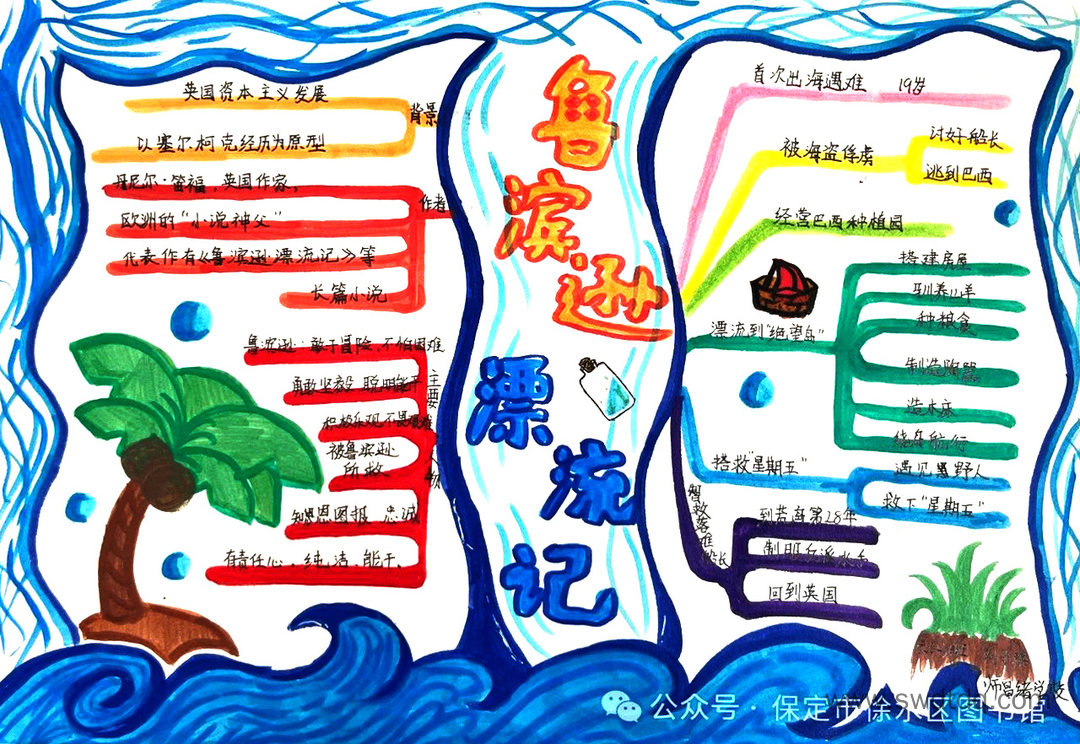 英国资本主义发展
背景
以塞尔柯克经历为原型
丹尼尔·笛福，英国作家，
作者
欧洲的“小说神父”
代表作有《鲁滨逊漂流记》等
长篇小说
鲁滨逊：敢于冒险，不怕困难
勇敢坚毅 聪明能干
主要
积极乐观 不畏艰难
被鲁滨逊
所救
知恩图报 忠诚
有责任心、纯洁、能干、
鲁滨逊
漂流记
首次出海遇难 19岁
被海盗俘虏
讨好船长
逃到巴西
经营巴西种植园
漂流到“绝望岛”
搭建房屋
驯养山羊
种粮食
制造陶器
造木床
绕岛航行
搭救“星期五”
遇见野人
救下“星期五”
智救落难船长
到荒岛第28年
制服叛派水手
回到英国
公众号·保定市徐水区图书馆